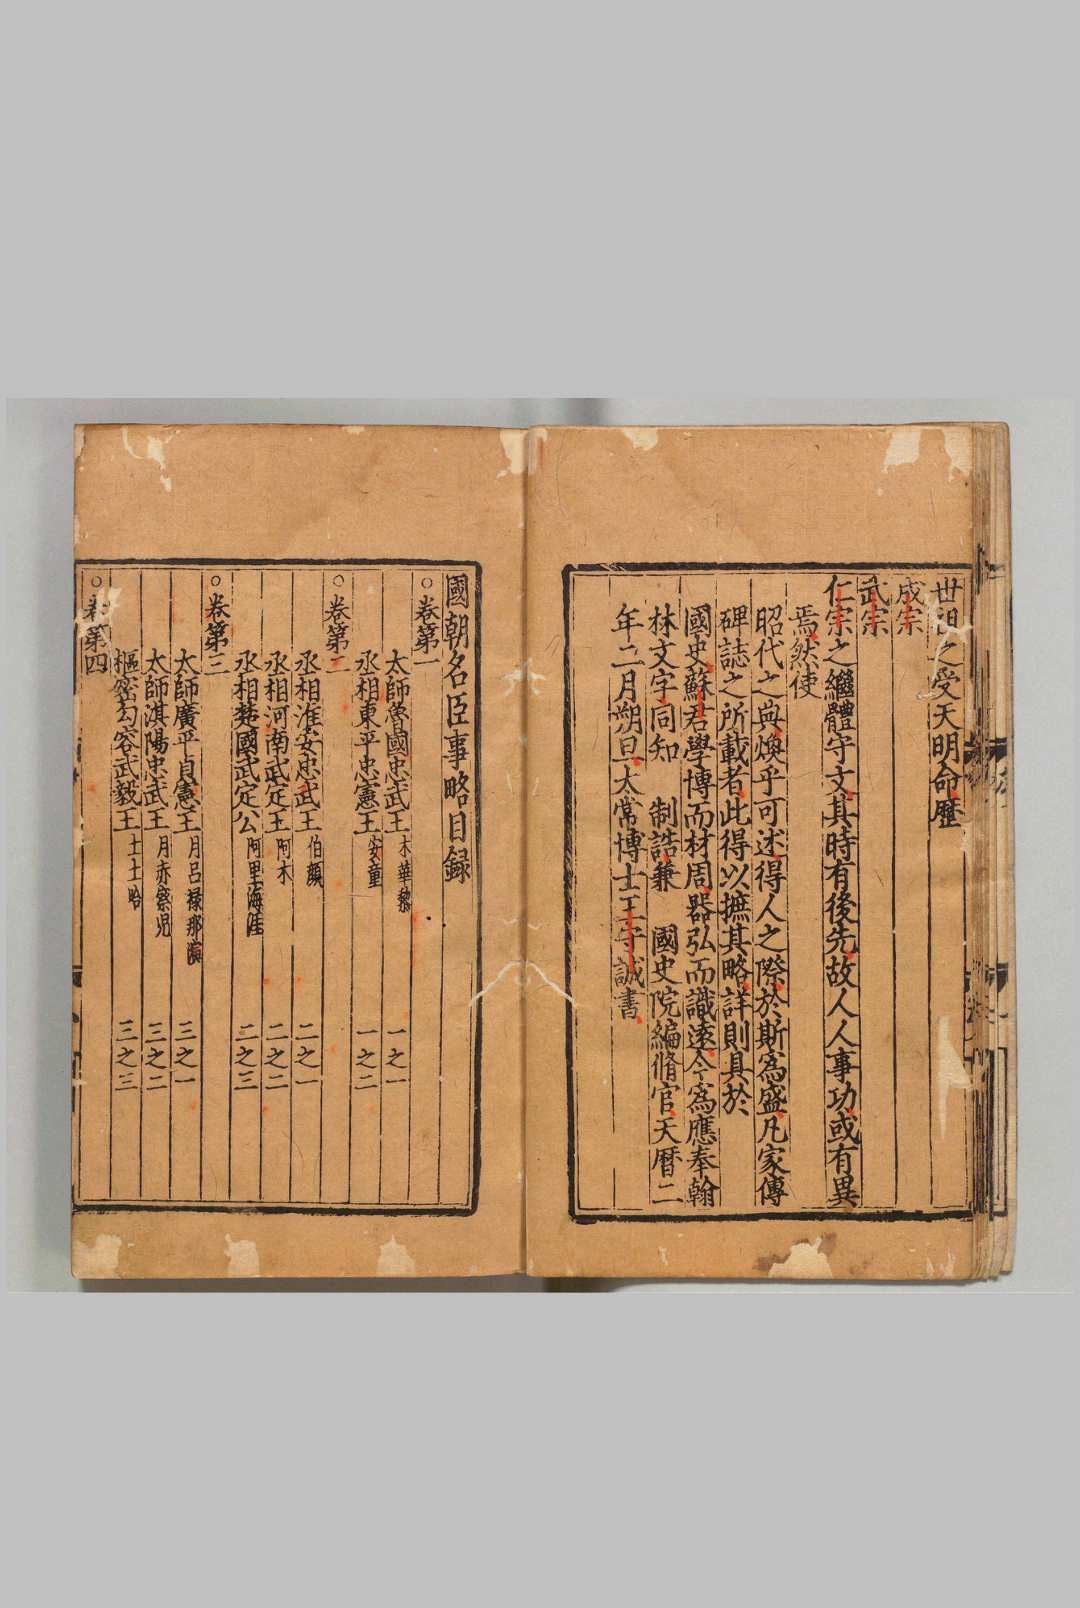 世祖之受天明命歷
成宗
武宗
仁宗之繼體守文其時有後先故人人事功或有異
焉然使
昭代之典煥乎可述得人之際於斯為盛凡家傳
碑誌之所載者此得以摭其略詳則具於
國史蘇君學博而材周器弘而識遠今為應奉翰
林文字同知 制誥兼 國史院編脩官天曆二
年二月朔旦太常博士王守誠書
國朝名臣事略目録
○卷第一
太師魯國忠武王 木華黎 一之一
丞相東平忠憲王 安童 一之二
○卷第二
丞相淮安忠武王 伯顔 二之一
丞相河南武定王 阿木 二之二
丞相楚國武定公 阿里海涯 二之三
○卷第三
太師廣平貞憲王 月吕禄那演 三之一
太師淇陽忠武王 月赤察児 三之二
樞密句容武毅王 土土哈 三之三
○卷第四